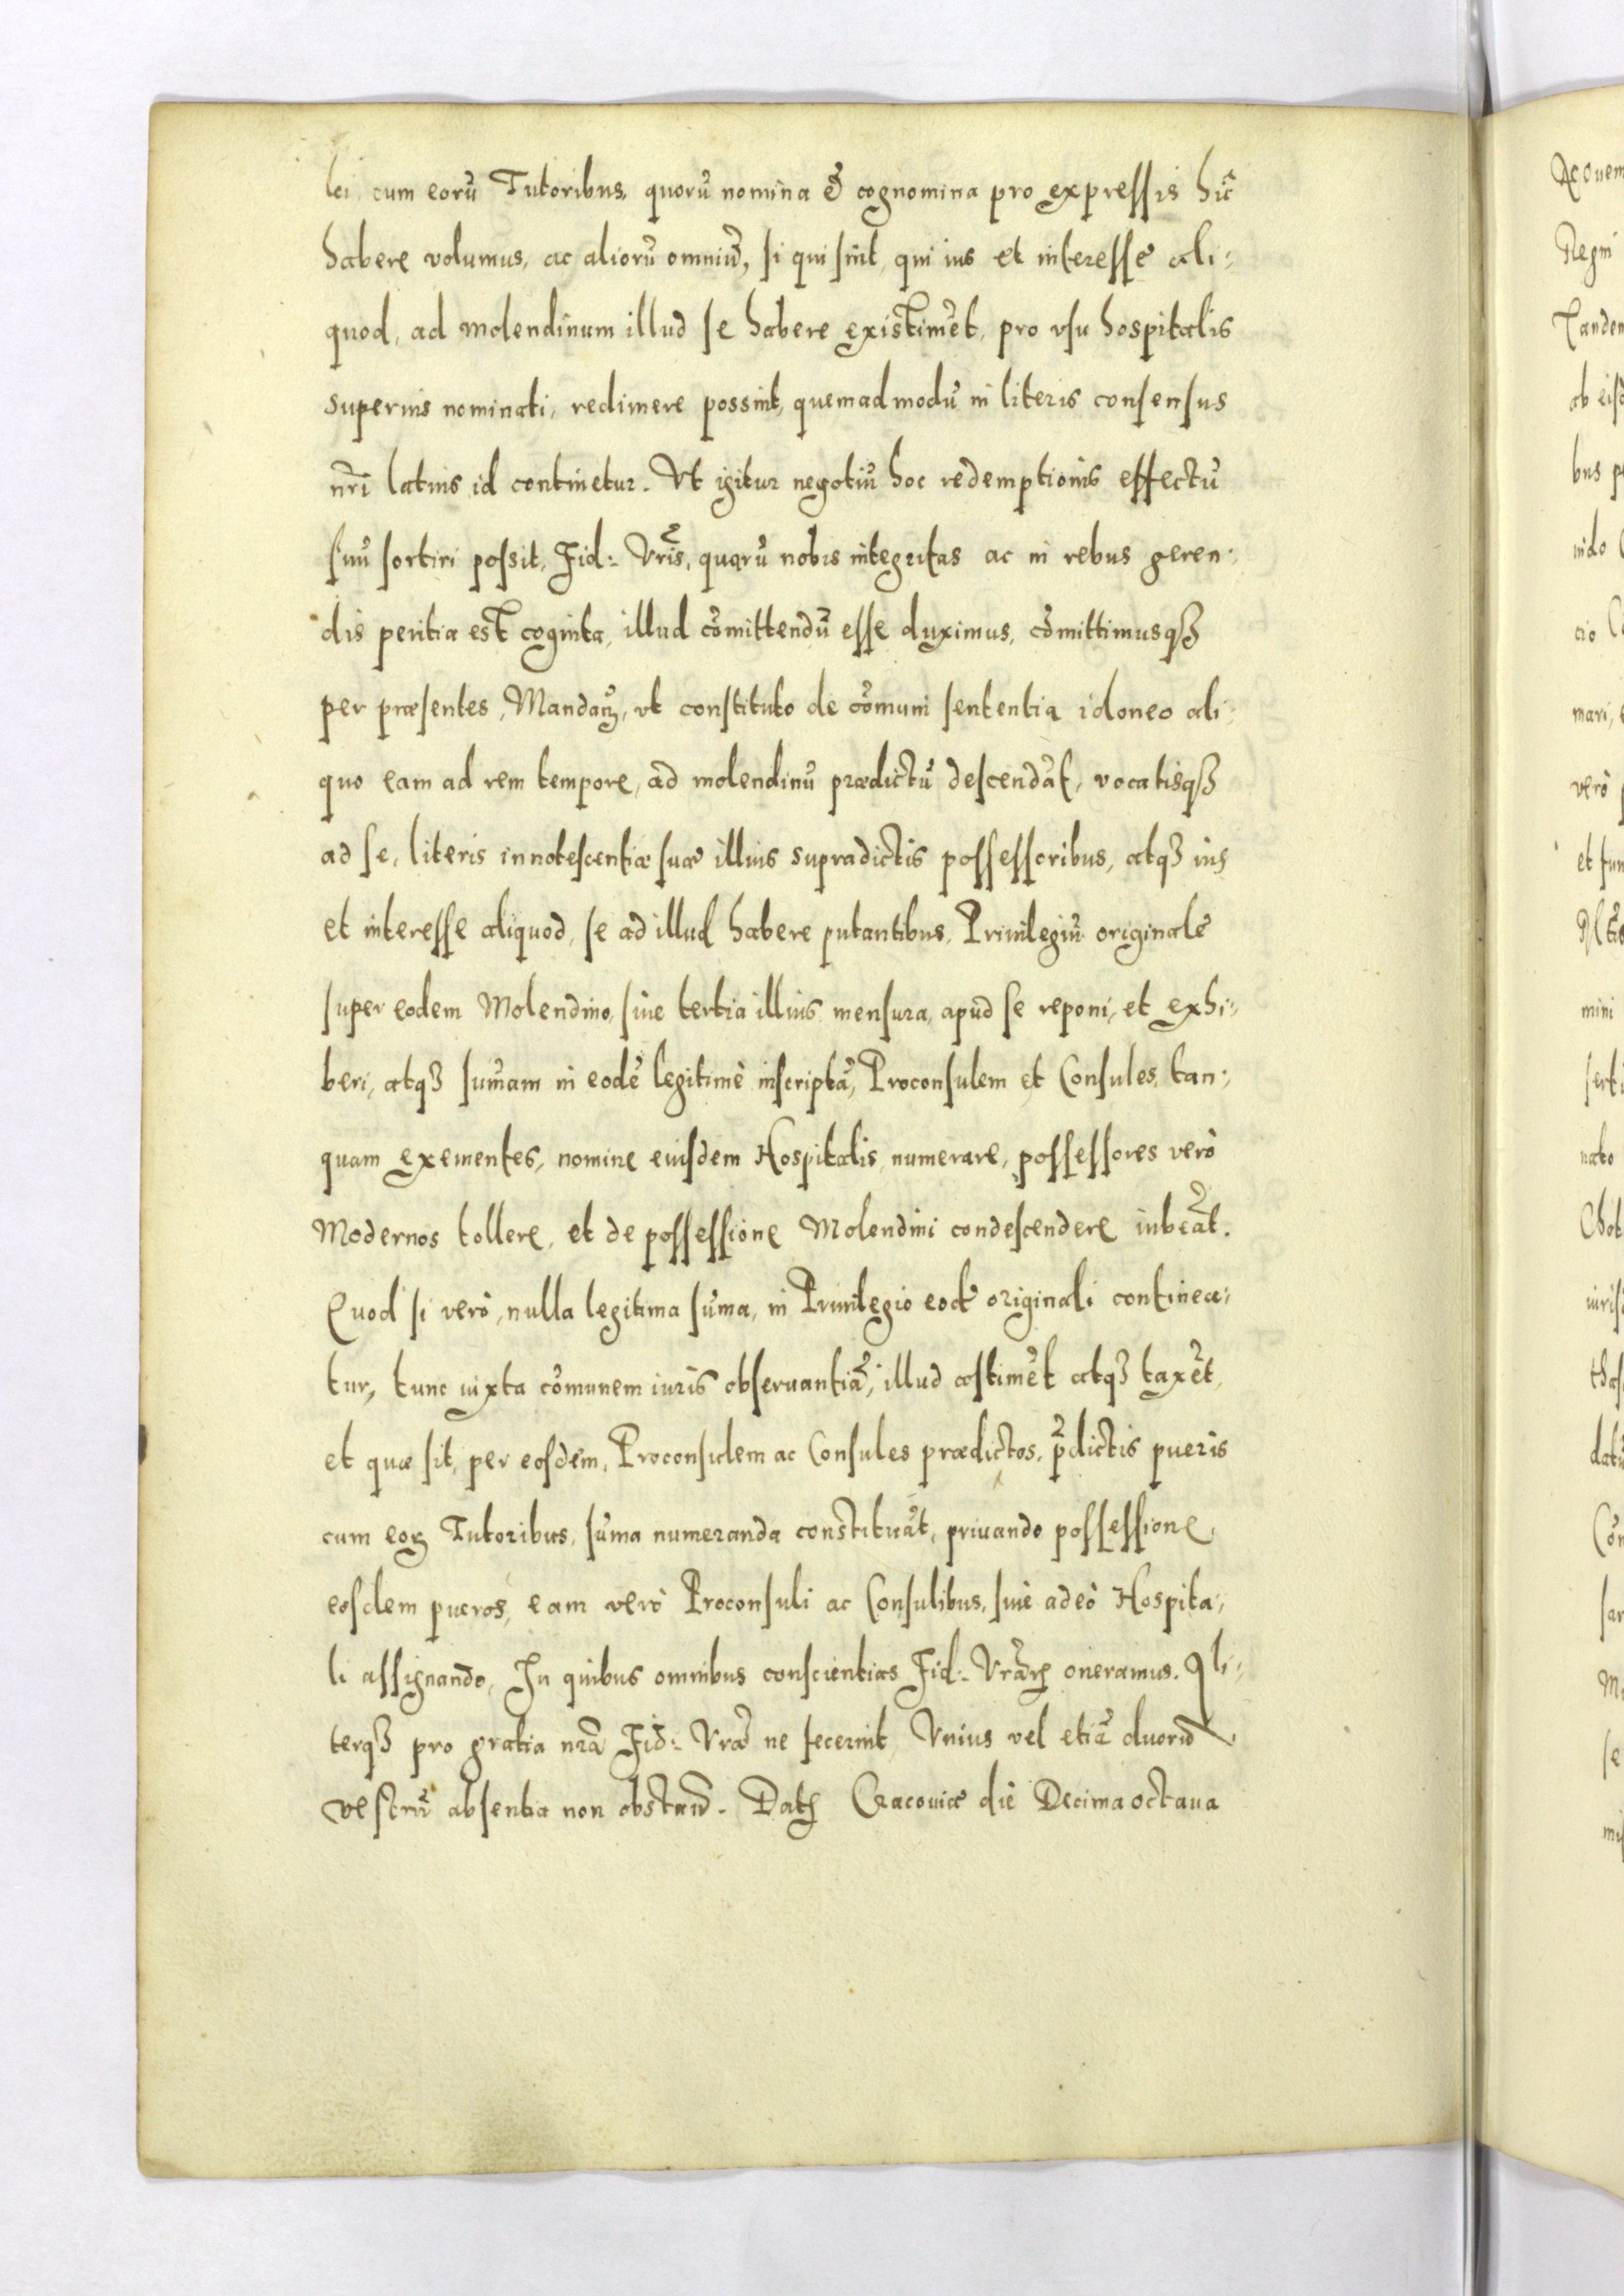 lei, cum eorũ Tutoribus, quorũ nomina & cognomina pro expressis hic
habere volumus, ac aliorũ omniũ, si qui sint, qui ius et interesse ali-
quod, ad molendinum illud se habere existimẽt, pro vsu hospitalis
superius nominati, redimere possint, quemadmodũ in literis consensus
nr̃i latius id continetur. Vt igitur negotiũ hoc redemptionis effectũ
suũ sortiri possit, Fid: Vr̃is, quarũ nobis integritas ac in rebus geren-
dis peritia est cognita, illud cõmittendũ esse duximus, cõmittimusqꝫ
per præsentes, Mandaꝶ, vt constituto de cõmuni sententia idoneo ali-
quo eam ad rem tempore, ad molendinũ prædictũ descendãt, vocatisqꝫ
ad se, literis innotescentiæ suæ illius supradictis possessoribus, atqꝫ ius
et interesse aliquod, se ad illud habere putantibus, Priuilegiũ originale
super eodem Molendino, siue tertia illius mensura, apud se reponi, et exhi-
beri, atqꝫ sum̃am in eodẽ legitimè inscriptã, Proconsulem et Consules, tan-
quam exementes, nomine eiusdem Hospitalis, numerare, possessores verò
Modernos tollere, et de possessione Molendini condescendere iubeãt.
Quod si verò, nulla legitima sum̃a, in Priuilegio eod̃ originali continea-
tur, tunc iuxta cõmunem iuris obseruantiã, illud æstimẽt atqꝫ taxẽt,
et quæ sit, per eosdem, Proconsulem ac Consules prædictos, p̃dictis pueris
cum eoꝶ Tutoribus, sum̃a numeranda constituãt, priuando possessione,
eosdem pueros, eam verò Proconsuli ac Consulibus, siue adeò Hospita-
li assignando, In quibus omnibus conscientias Fid: Vr̃aꝶ oneramus. Ꝗli-
terqꝫ pro gratia nr̃a Fid: Vræ ne fecerint, Vnius vel etiã duorũ
vestrũ absentia non obstañ. Datꝶ Cracouiæ die Decima octaua